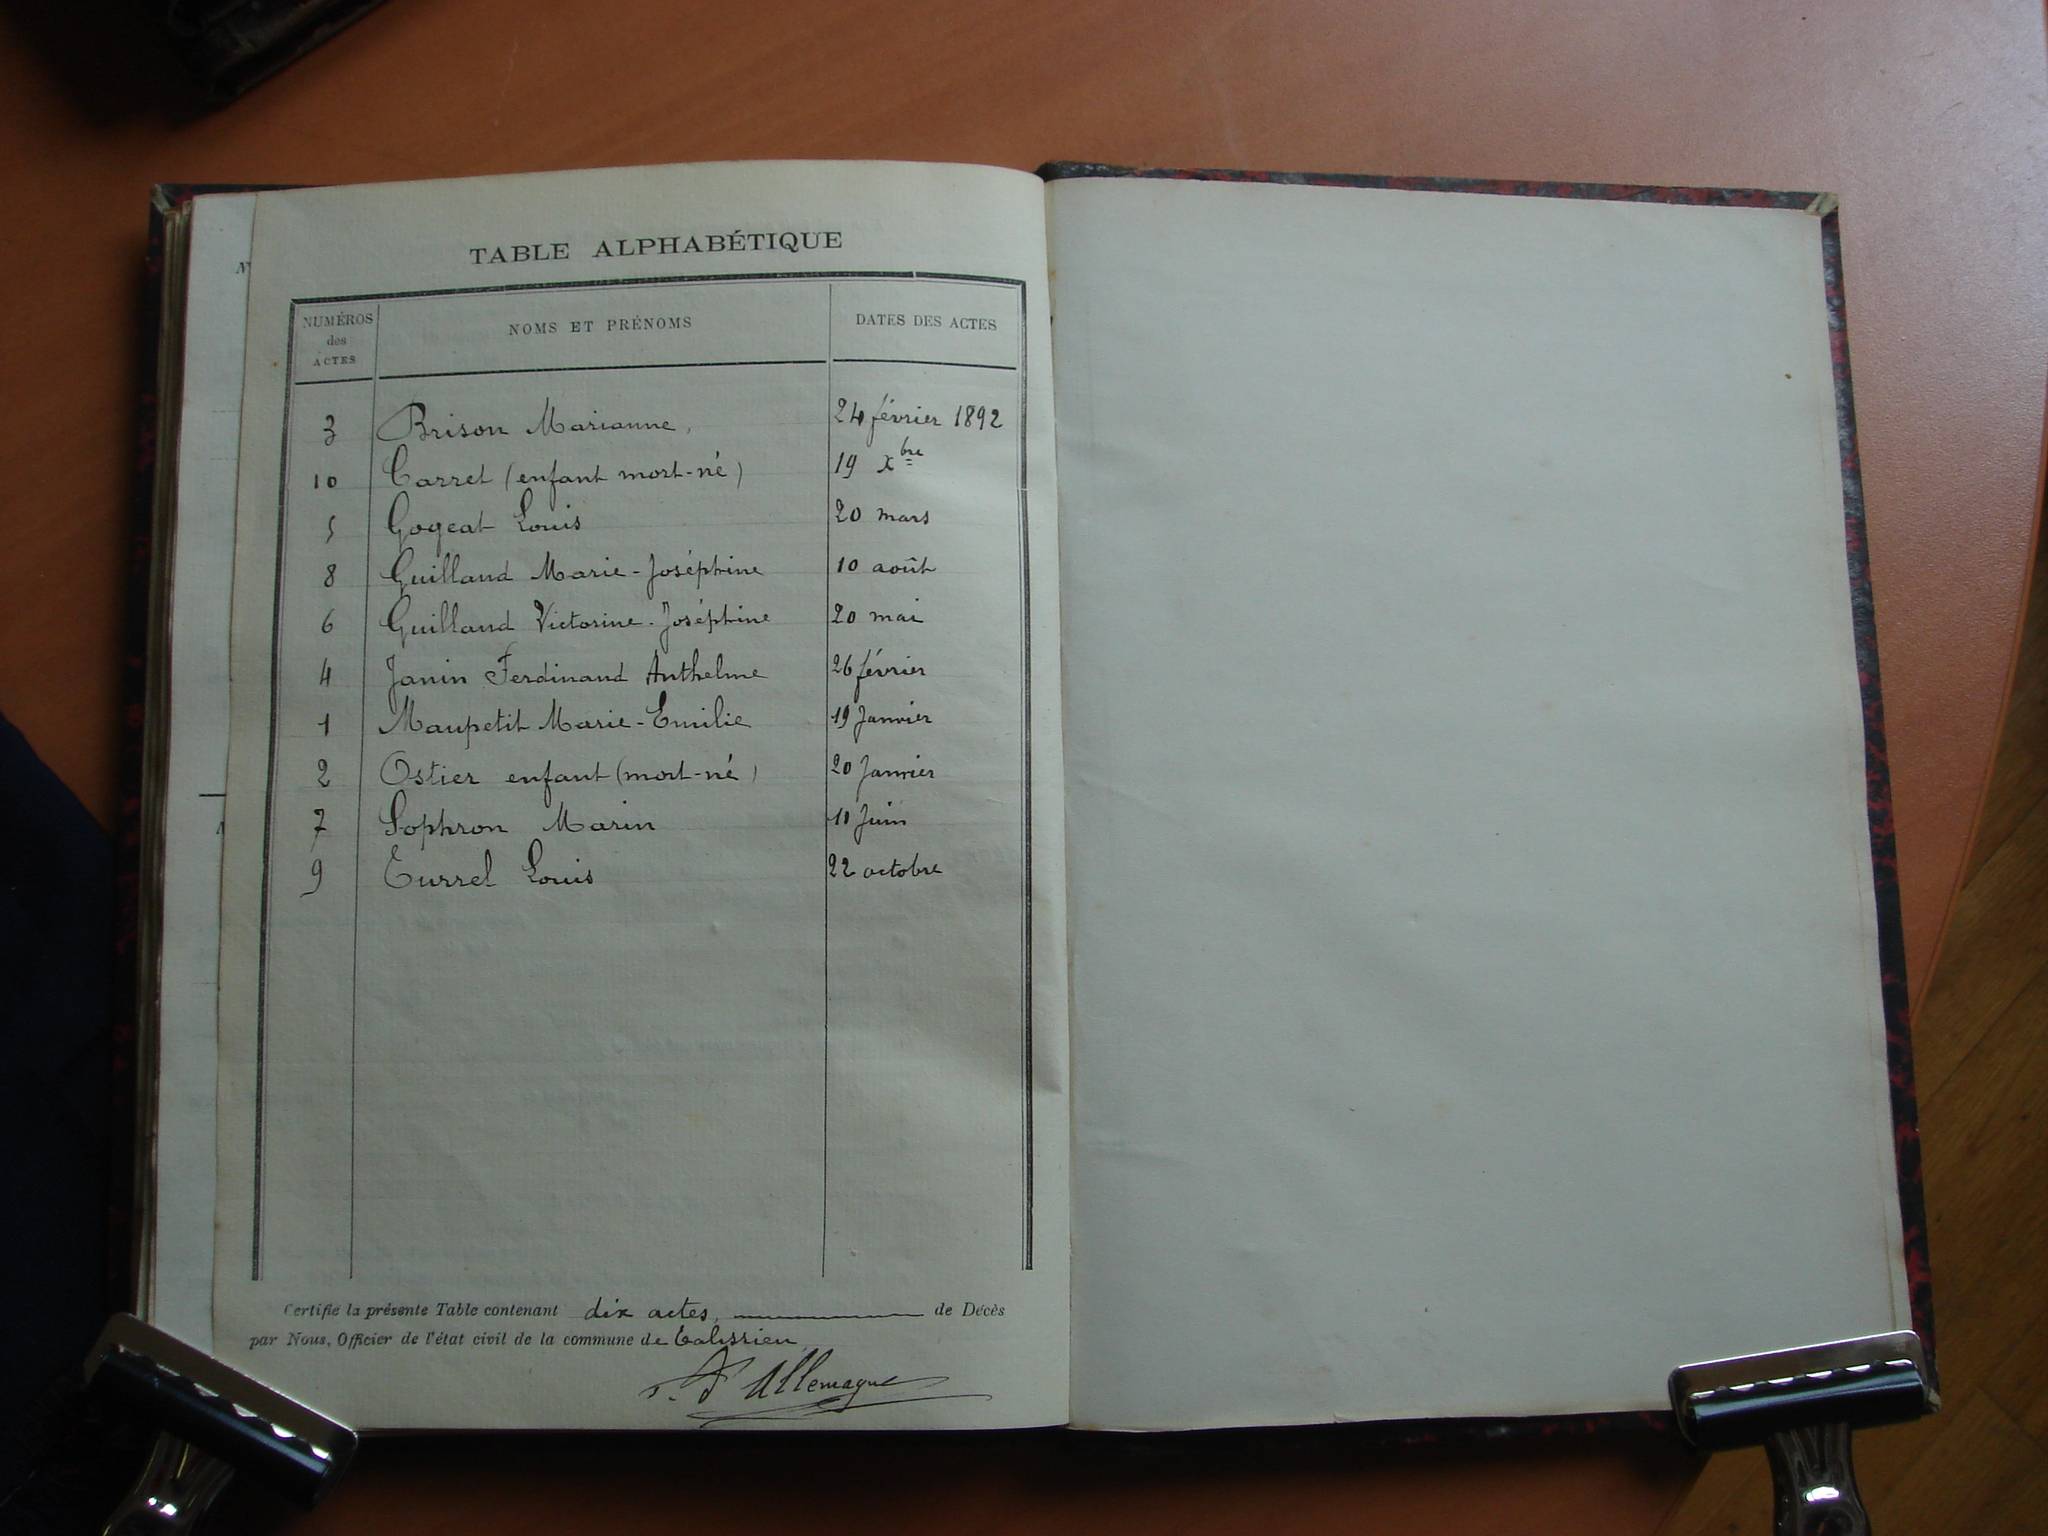 TABLE ALPHABÉTIQUE
NUMÉROS des ACTES NOMS ET PRÉNOMS DATES DES ACTES
3 Brison Marianne, 24 février 1892
10 Carret (enfant mort-né) 19 Xbre
5 Gogeat Louis 20 mars
8 Guilland Marie-Joséphine 10 août
6 Guilland Victorine-Joséphine 20 mai
4 Janin Ferdinand Anthelme 26 février
1 Maupetit Marie-Emilie 19 Janvier
2 Ostier enfant (mort-né) 20 Janvier
7 Sophron Marin 10 Juin
9 Turrel Louis 22 octobre
Certifié la présente Table contenant dix actes, de Décès
par Nous, Officier de l'état civil de la commune de Talissieu
d'Allemagne